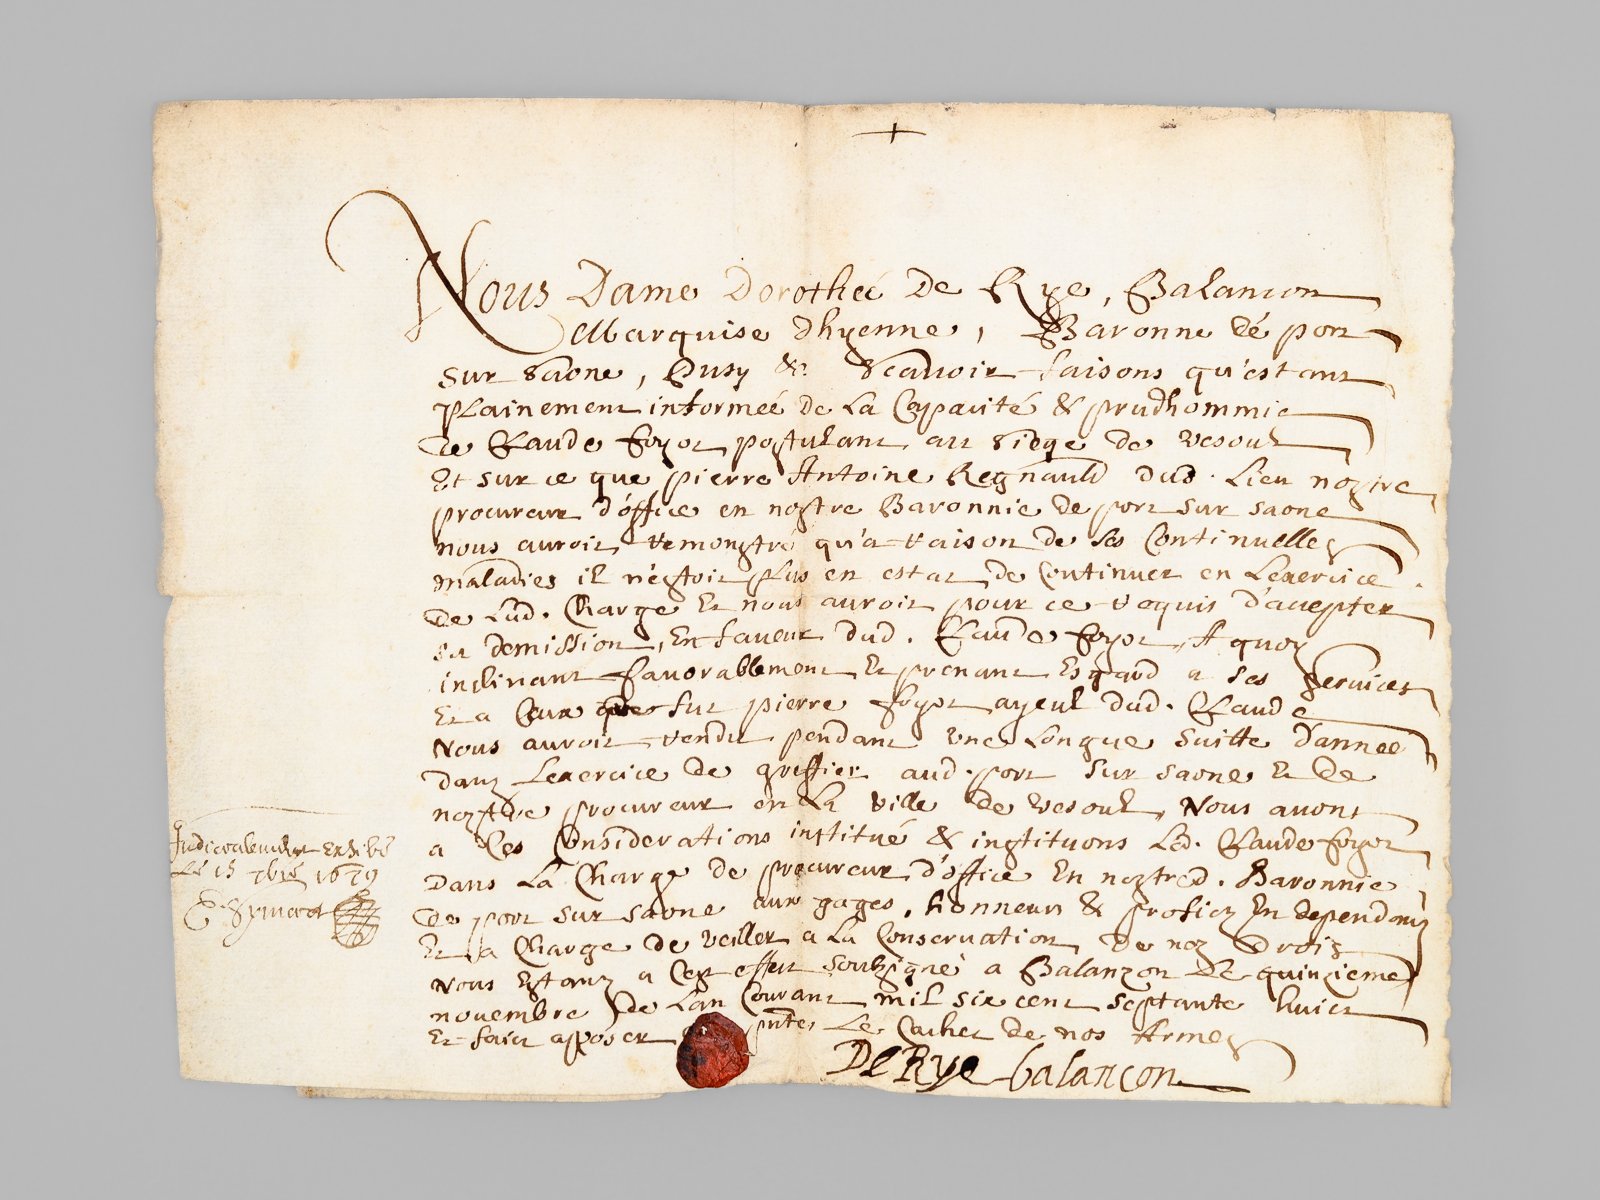 Nous Dame Dorotheé De Rye, Balancon
Marquise dhyenne, Baronne dé port
sur saone, Pusy &c scauoir faisons qu'estant
plainement informeé de La Capacité & prudhommie
de Claude foyot postulant au siege de vesoul
Et sur ce que pierre Antoine Regnauld dud. Lieu nostre
procureur d'office en nostre Baronnie de port sur saone
nous auroit remonstré qu'a raison de ses Continuelles
maladies il n'estoit plus en estat de Continuer en Lexercice
de Lad. Charge Et nous auroit pour ce requis d'accepter
sa demission, En faueur dud. Claude foyot, A quoy
inclinant fauorablement Et prenant Esgard a ses seruices
Et a Ceux que fut pierre foyot ayeul dud. Claude
Nous auroit rendu pendant vne Longue suitte d'anneé
dans Lexercice de greffier aud. port sur saone Et de
nostre procureur en La ville de vesoul, Nous auons
a Ces Considerations institué & instituons Led. Claude foyot
Dans La Charge de procureur d'office En nostred. Baronnie
de port sur saone aux gages, honneurs & profictz En dependantz
Et a Charge de veiller a La Conseruation De noz Droitz
Nous Estantz a Cet effect soubsigné a Balançon Le quinzieme
nouembre de Lan Courant mil six cent septante huict
Et faict apposer pntes Le Cachet de nos Armes
De Rye balancon
Judicialement Exhibé
Le 15 7bre 1679